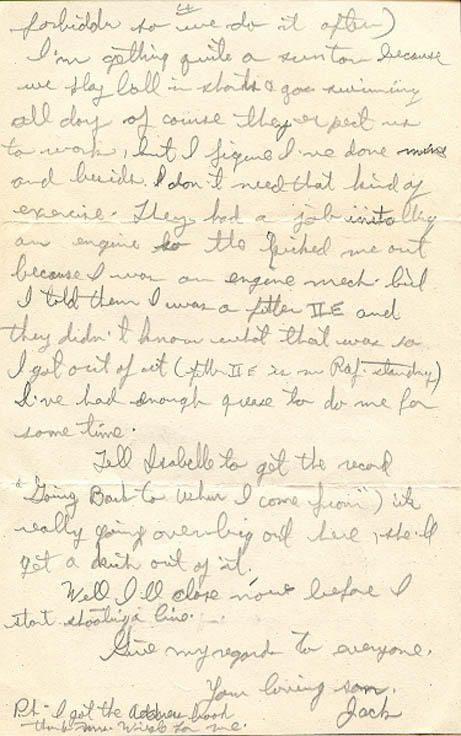 4
forbidden so we do it often)
I'm getting quite a suntan because
we play ball in shorts & go swimming
all day of course they expect us
to work, but I figure I've done mine
and besids I don't need that kind of
exercise. They had a job installing
an engine so the picked me out
because I was an engine mech. but
I told them I was a fitter II E and
they didn't know what that was so
I got out of it (fitter II E is an Raf. standing)
I've had enough grease to do me for
some time.
Tell Isabelle to get the record
"Going Back to Where I come from") its
really going over big out here, she'll
get a out of it.
Well I'll close now before I
start shooting a line.
Give my regards to everyone.
Your loving son,
Jack
P.S- I got the Address book
thank Mrs. for me.